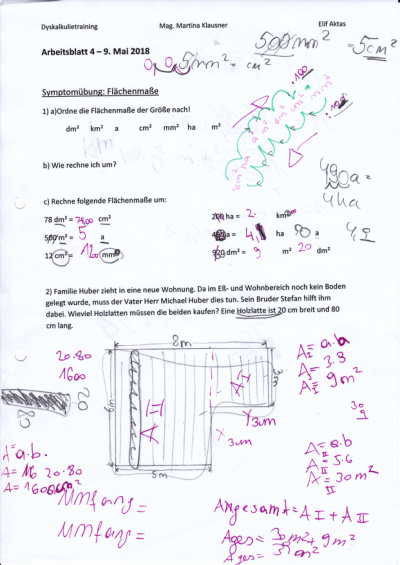 Dyskalkulietraining Mag. Martina Klausner Elif Aktas
Arbeitsblatt 4 – 9. Mai 2018
500mm² = 5cm²
0,05mm² = cm²
Symptomübung: Flächenmaße
1) a)Ordne die Flächenmaße der Größe nach!
dm² km² a cm² mm² ha m²
km² ha a m² dm² cm² mm²
.100
:100
b) Wie rechne ich um?
400a =
4ha
c) Rechne folgende Flächenmaße um:
78 dm² = 7800 cm² 200 ha = 2 km²
500 m² = 5 a ha a
12 cm² = 1200 mm² 920 dm² = 9 m² 20 dm²
2) Familie Huber zieht in eine neue Wohnung. Da im Eß- und Wohnbereich noch kein Boden
gelegt wurde, muss der Vater Herr Michael Huber dies tun. Sein Bruder Stefan hilft ihm
dabei. Wieviel Holzlatten müssen die beiden kaufen? Eine Holzlatte ist 20 cm breit und 80
cm lang.
8m
20.80
1600
20
80
6m
A II
A I
3m
3m
3m
5m
A = a.b
I
A = 3.3
I
A = 9m²
I
A = a.b
II
A = 5.6
II
A = 30m²
II
A = a.b.
A = 16 20.80
A = 1600cm²
Umfang =
Umfang =
Angesamt = A I + A II
Ages = 30m² + 9m²
Ages = 39m²